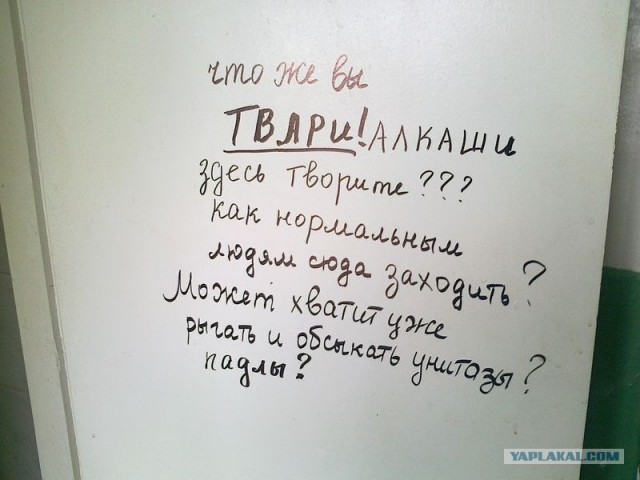 что же вы
ТВАРИ! АЛКАШИ
здесь творите???
как нормальным
людям сюда заходить?
Может хватит уже
рыгать и обсыкать унитазы?
падлы?
YAPLAKAL.COM